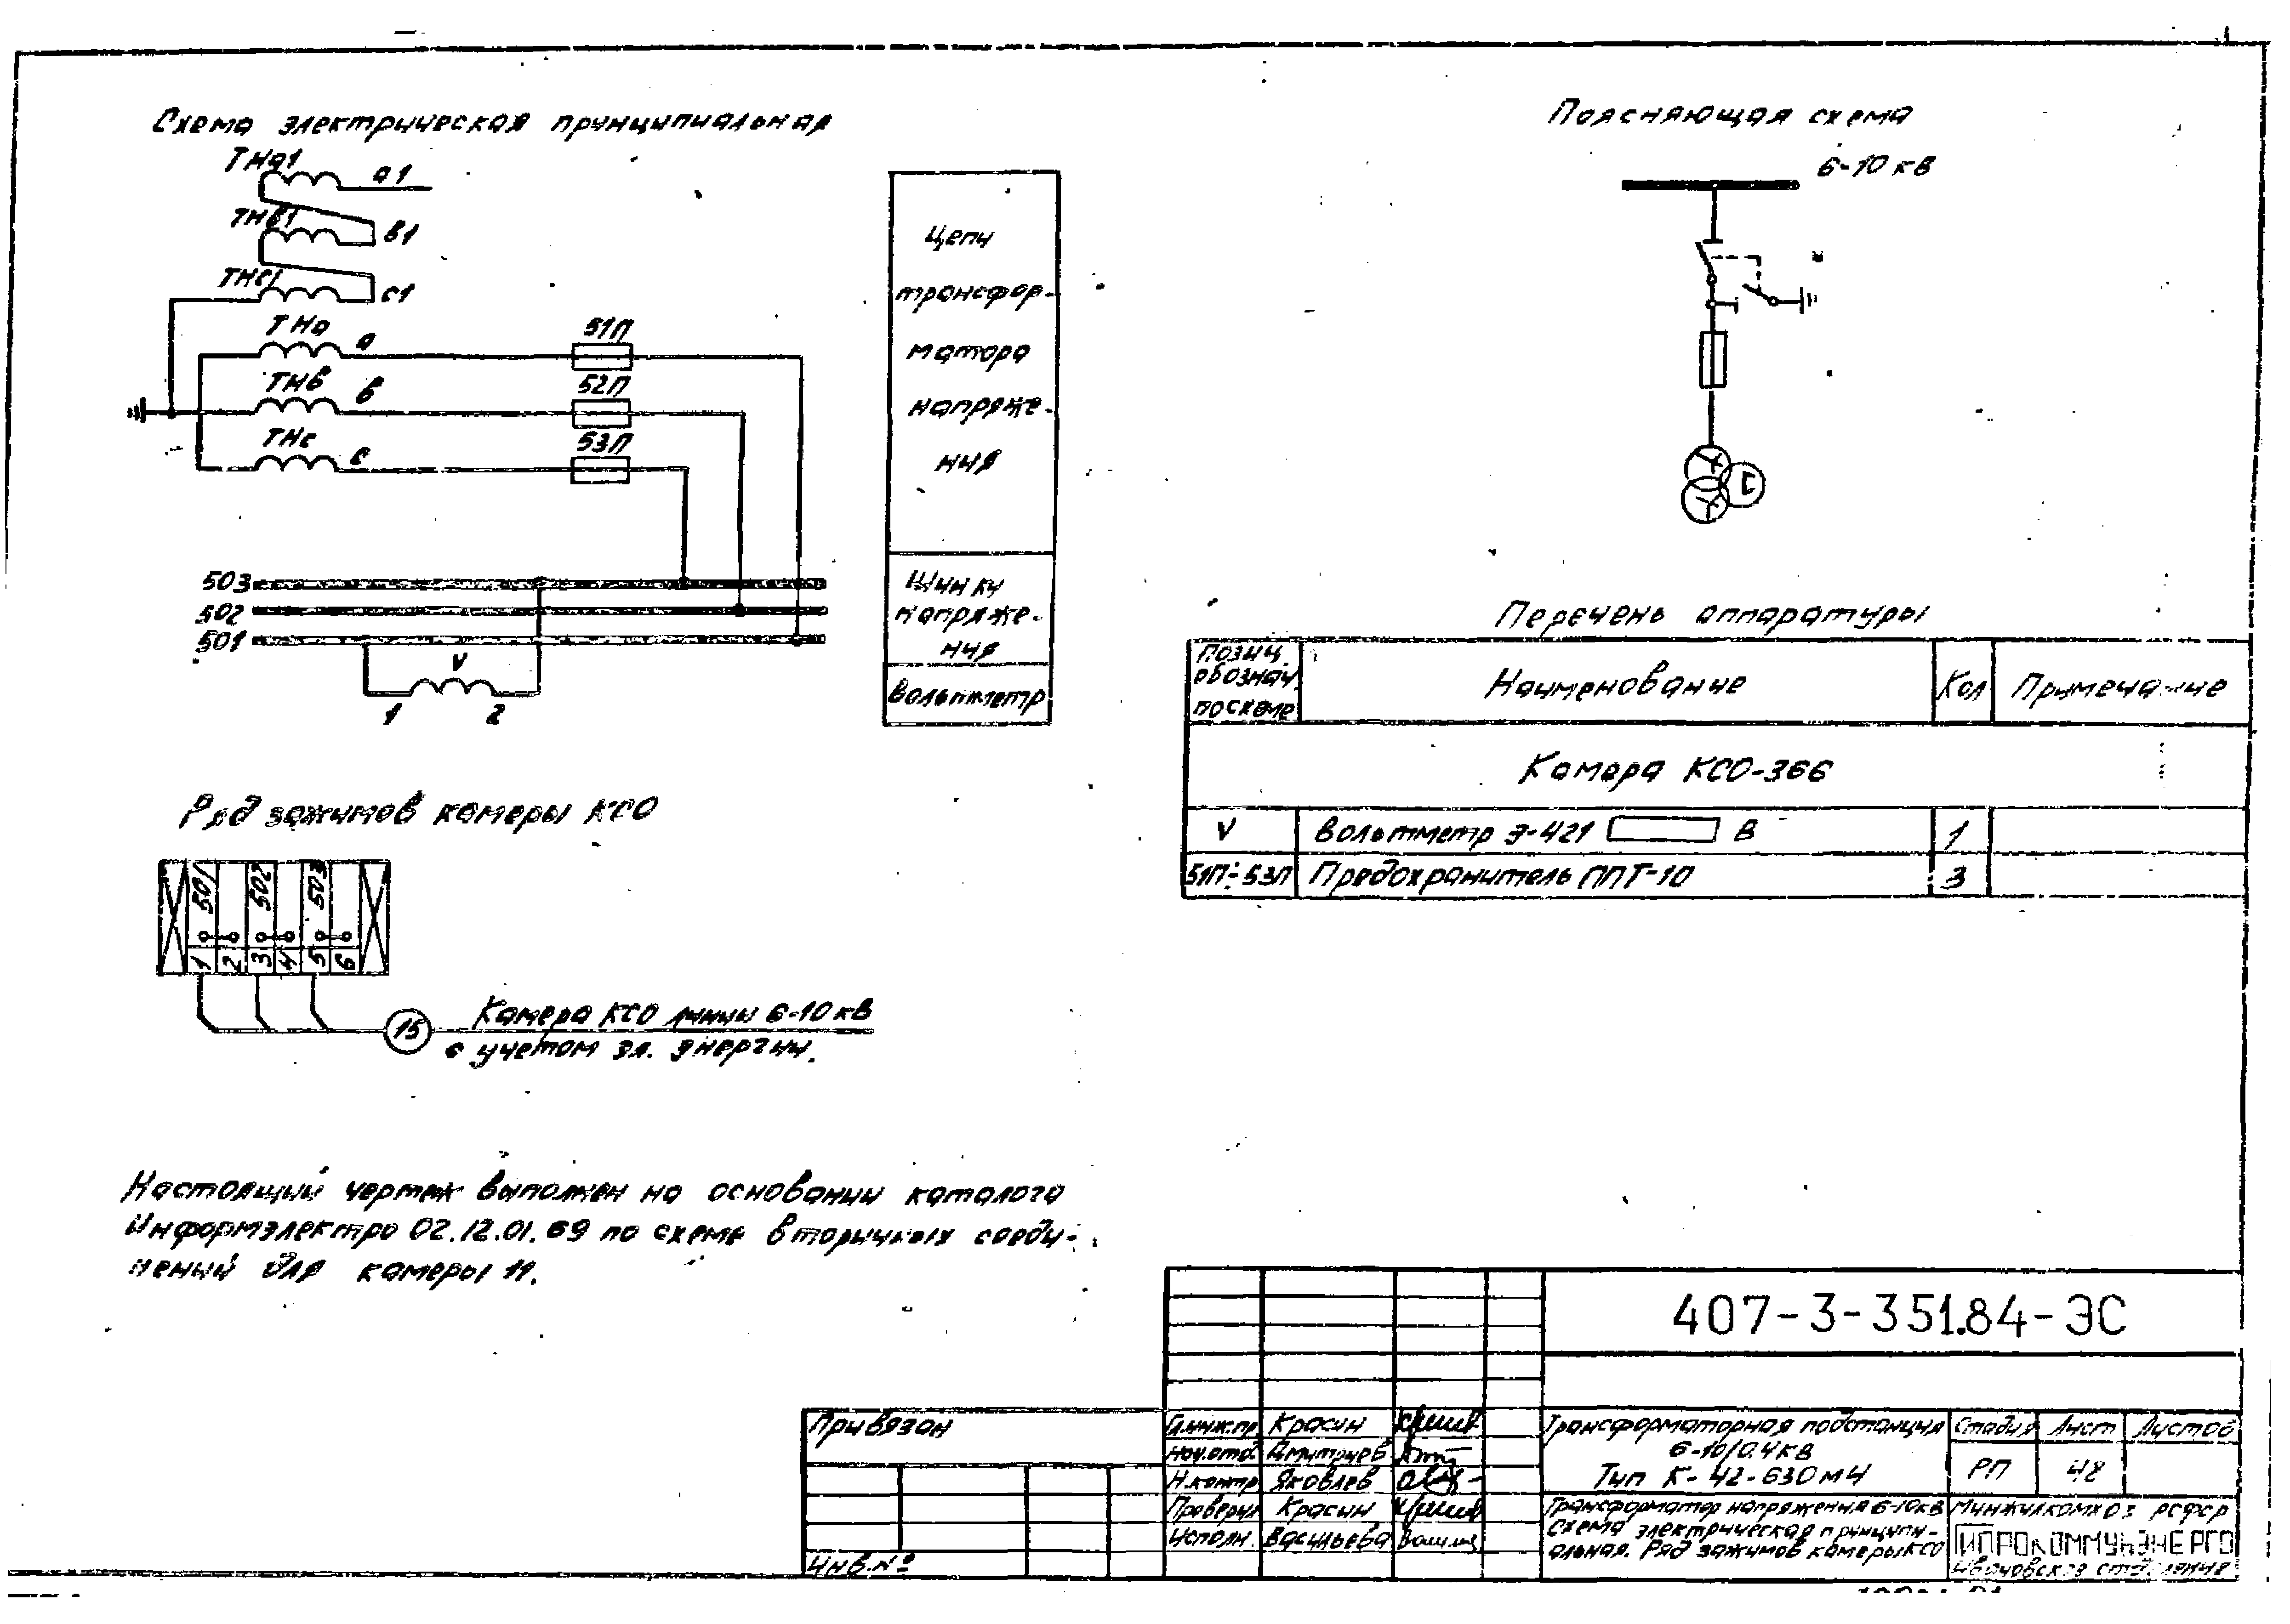 Схема электрическая принципиальная
ТНа1
а1
ТНв1
в1
ТНс1
с1
ТНа
а
51П
ТНв
в
52П
ТНс
с
53П
503
502
501
V
1
2
Цепи
трансфор-
матора
напряже-
ния
Шинки
напряже-
ния
Вольтметр
Поясняющая схема
6-10 кв
Перечень аппаратуры
Позиц. обознач. по схеме
Наименование
Кол
Примечание
Камера КСО-366
V
Вольтметр Э-421 В
1
51П÷53П
Предохранитель ППТ-10
3
Ряд зажимов камеры КСО
501
502
503
1
2
3
4
5
6
15
Камера КСО линии 6-10 кв
с учетом эл. энергии.
Настоящий чертеж выполнен на основании каталога
Информэлектро 02.12.01.69 по схеме вторичных соеди-
нений для камеры 11.
407-3-351.84-ЭС
Привязан
Инв.№
Гл.инж.пр. Красин
Нач.отд. Дмитриев
Н.контр. Яковлев
Проверил Красин
Исполн. Васильева
Трансформаторная подстанция
6-10/0.4кв
Тип К-42-630М4
Стадия Лист Листов
РП 48
Трансформатор напряжения 6-10кв
Схема электрическая принципи-
альная. Ряд зажимов камеры КСО
Минжилкомхоз РСФСР
ГИПРОКОММУНЭНЕРГО
Ивановское отделение